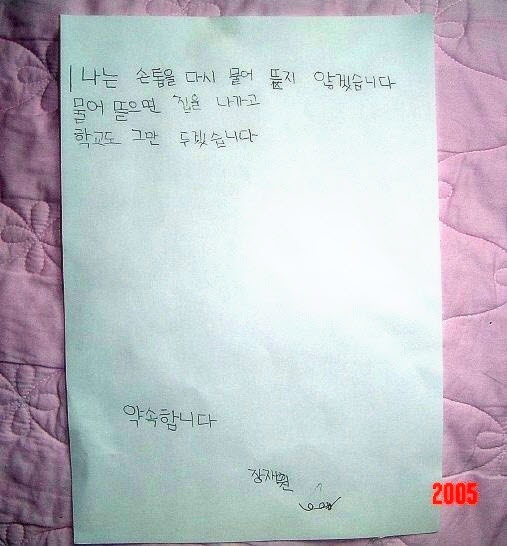 나는 손톱을 다시 물어 뜯지 않겠습니다
물어 뜯으면 집을 나가고
학교도 그만 두겠습니다
약속합니다
장재원
2005